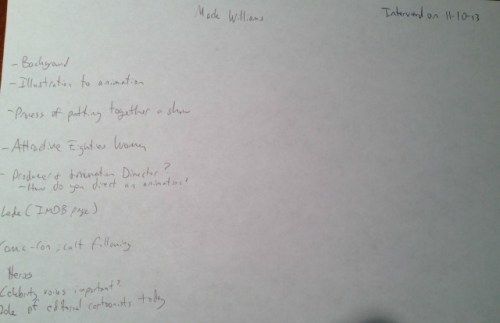 Mark Williams
Interviewed on 11-10-13
- Background
- Illustration to animation
- Process of putting together a show
- Attractive Eighties Women
- Producer & Director?
- How do you direct an animation?
(IMDB page)
Comic-Con, cult following
Heroes
Celebrity voices important?
Role of editorial cartoonists today